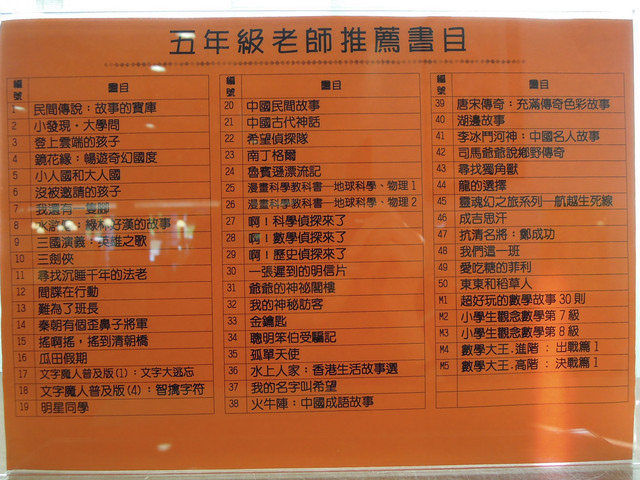 五年級老師推薦書目
編號 書目
1 民間傳說：故事的寶庫
2 小發現・大學問
3 登上雲端的孩子
4 鏡花緣：暢遊奇幻國度
5 小人國和大人國
6 沒被邀請的孩子
7 我還有一隻腳
8 水滸傳：綠林好漢的故事
9 三國演義：英雄之歌
10 三劍俠
11 尋找沉睡千年的法老
12 間諜在行動
13 難為了班長
14 秦朝有個歪鼻子將軍
15 搖啊搖，搖到清朝橋
16 瓜田假期
17 文字魔人普及版(1)：文字大逃忘
18 文字魔人普及版(4)：智擒字符
19 明星同學
編號 書目
20 中國民間故事
21 中國古代神話
22 希望偵探隊
23 南丁格爾
24 魯賓遜漂流記
25 漫畫科學教科書—地球科學、物理1
26 漫畫科學教科書—地球科學、物理2
27 啊！科學偵探來了
28 啊！數學偵探來了
29 啊！歷史偵探來了
30 一張遲到的明信片
31 爺爺的神祕閣樓
32 我的神秘訪客
33 金鑰匙
34 聰明笨伯受騙記
35 孤單天使
36 水上人家：香港生活故事選
37 我的名字叫希望
38 火牛陣：中國成語故事
編號 書目
39 唐宋傳奇：充滿傳奇色彩故事
40 湖邊故事
41 李冰鬥河神：中國名人故事
42 司馬爺爺說鄉野傳奇
43 尋找獨角獸
44 龍的選擇
45 靈魂幻之旅系列—航越生死線
46 成吉思汗
47 抗清名將：鄭成功
48 我們這一班
49 愛吃糖的菲利
50 東東和稻草人
M1 超好玩的數學故事30則
M2 小學生觀念數學第7級
M3 小學生觀念數學第8級
M4 數學大王.進階：出戰篇1
M5 數學大王.高階：決戰篇1